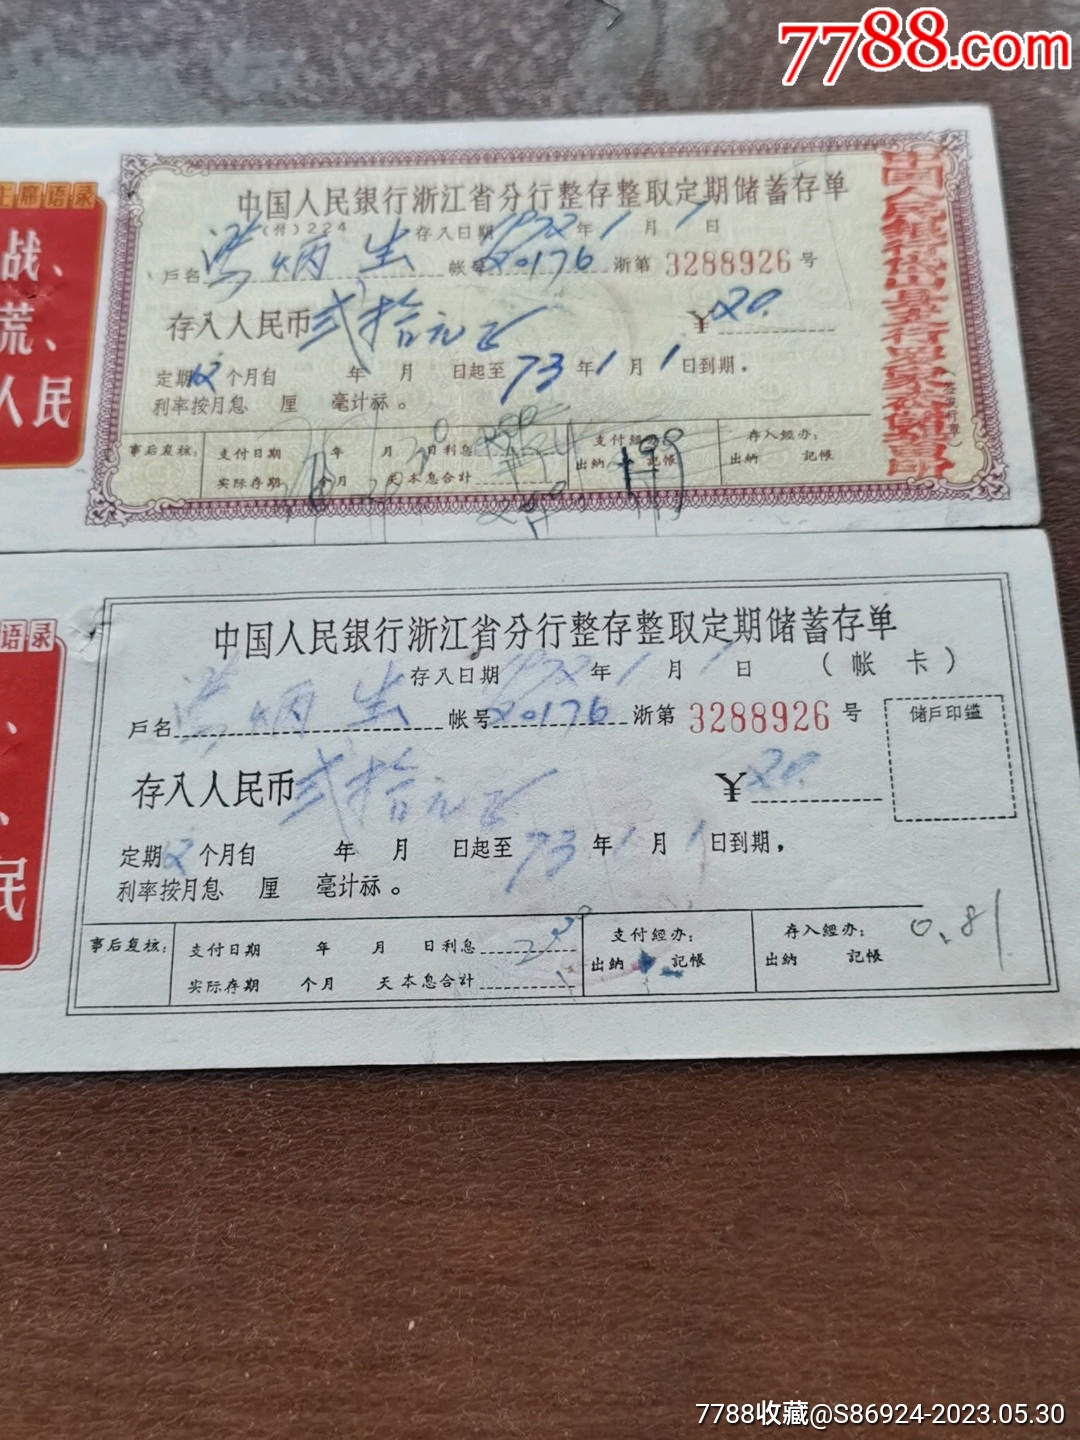 7788.com
主席语录
战、
荒、
人民
中国人民银行浙江省分行整存整取定期储蓄存单
(付)224 存入日期 1972年1月1日
戶名 炳生 帐号20176 浙第 3288926 号
存入人民币贰拾元正 ¥20.
定期12个月自 年 月 日起至73年1月1日到期。
利率按月息 厘 毫计标。
事后复核: 支付日期 年 月 日利息 支付經办: 存入經办:
实际存期 个月 天本息合計 出納 記帳 出納 記帳
语录
、
、
民
中国人民银行浙江省分行整存整取定期储蓄存单
存入日期 1972年1月1日 (帐卡)
戶名 炳生 帐号20176 浙第 3288926 号
储戶印鑑
存入人民币贰拾元正 ¥20.
定期12个月自 年 月 日起至73年1月1日到期,
利率按月息 厘 毫计标。
事后复核: 支付日期 年 月 日利息 支付經办: 存入經办: 0.81
实际存期 个月 天本息合計 出納 記帳 出納 記帳
7788收藏@S86924-2023.05.30